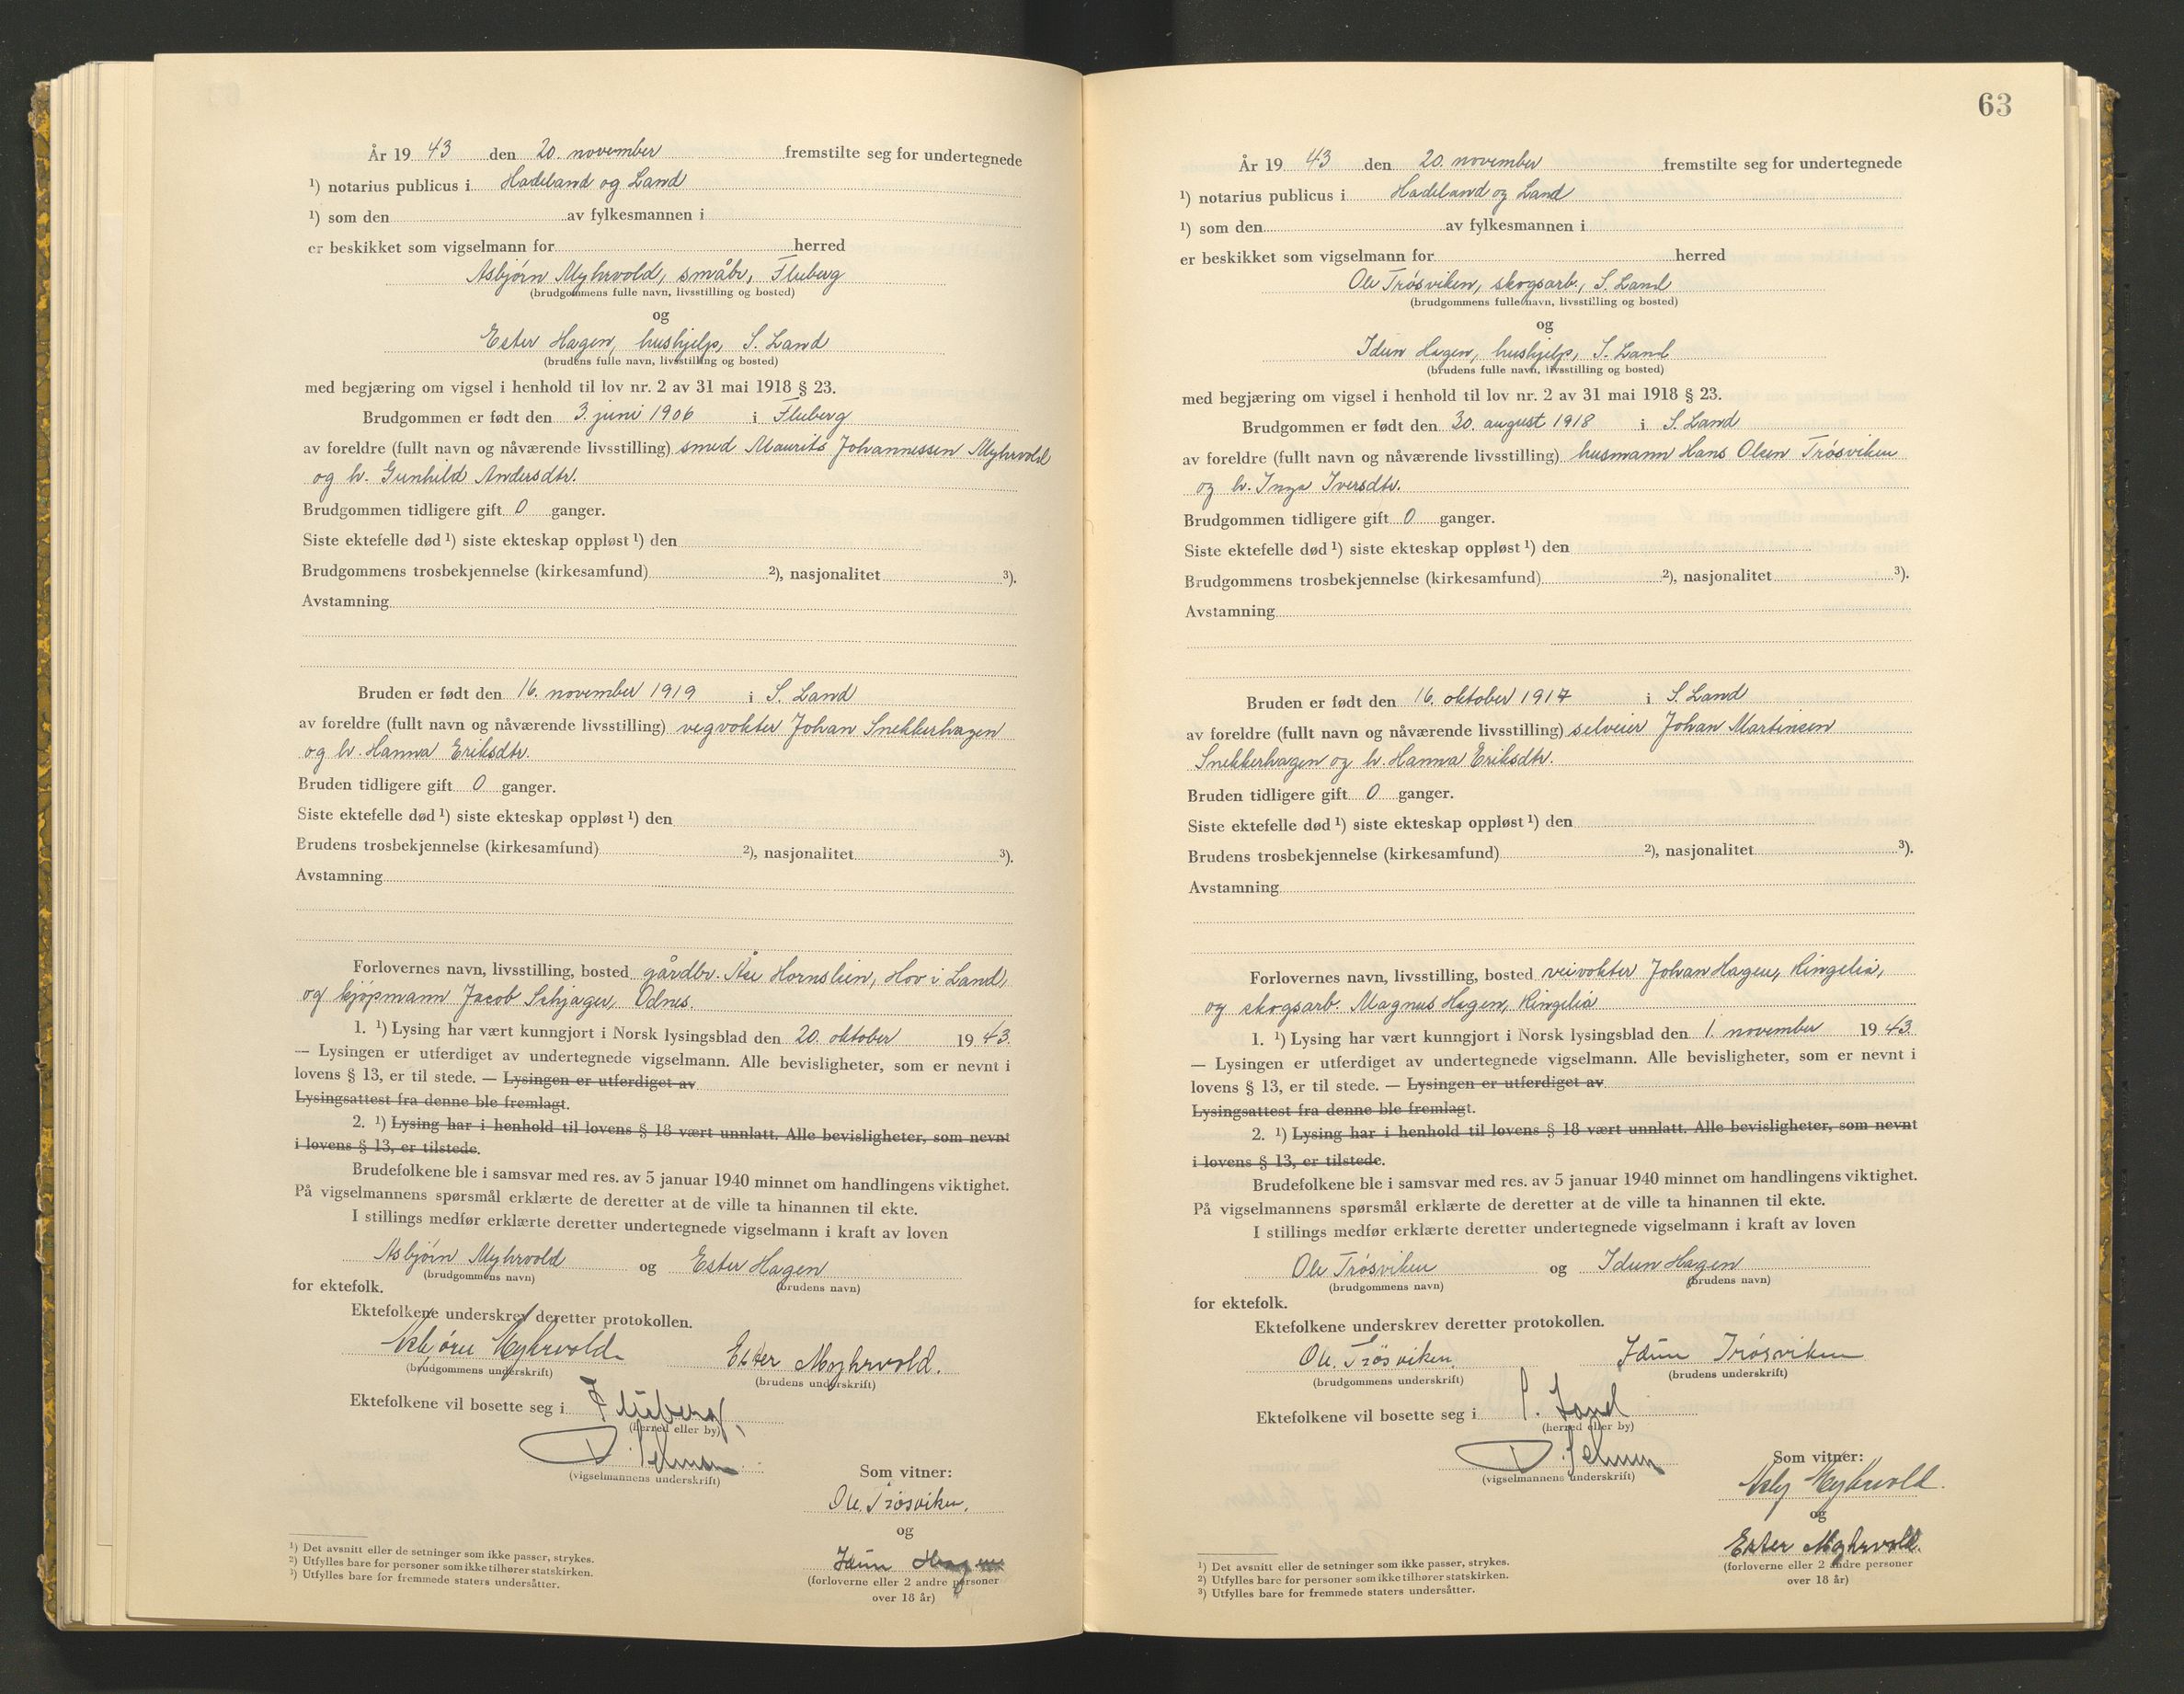 År 19 43 den 20. november fremstilte seg for undertegnede
¹) notarius publicus i Hadeland og Land
¹) som den av fylkesmannen i
er beskikket som vigselmann for herred
Asbjørn Myhrvold, småbr., Fluberg
(brudgommens fulle navn, livsstilling og bosted)
og
Ester Hagen, hushjelp, S. Land
(brudens fulle navn, livsstilling og bosted)
med begjæring om vigsel i henhold til lov nr. 2 av 31 mai 1918 § 23.
Brudgommen er født den 3. juni 1906 i Fluberg
av foreldre (fullt navn og nåværende livsstilling) smed Maurits Johannessen Myhrvold
og h. Gunhild Andersdtr.
Brudgommen tidligere gift 0 ganger.
Siste ektefelle død ¹) siste ekteskap oppløst ¹) den
Brudgommens trosbekjennelse (kirkesamfund) ²), nasjonalitet ³).
Avstamning
Bruden er født den 16. november 1919 i S. Land
av foreldre (fullt navn og nåværende livsstilling) vegvokter Johan Snekkerhagen
og h. Hanna Eriksdtr.
Bruden tidligere gift 0 ganger.
Siste ektefelle død ¹) siste ekteskap oppløst ¹) den
Brudens trosbekjennelse (kirkesamfund) ²), nasjonalitet ³).
Avstamning
Forlovernes navn, livsstilling, bosted gårdbr. Åse Hornslien, Hov i Land,
og kjøpmann Jacob Schjager, Odnes.
1. ¹) Lysing har vært kunngjort i Norsk lysingsblad den 20. oktober 19 43.
— Lysingen er utferdiget av undertegnede vigselmann. Alle bevisligheter, som er nevnt i
lovens § 13, er til stede. — Lysingen er utferdiget av
Lysingsattest fra denne ble fremlagt.
2. ¹) Lysing har i henhold til lovens § 18 vært unnlatt. Alle bevisligheter, som nevnt
i lovens § 13, er tilstede.
Brudefolkene ble i samsvar med res. av 5 januar 1940 minnet om handlingens viktighet.
På vigselmannens spørsmål erklærte de deretter at de ville ta hinannen til ekte.
I stillings medfør erklærte deretter undertegnede vigselmann i kraft av loven
Asbjørn Myhrvold og Ester Hagen
(brudgommens navn) (brudens navn)
for ektefolk.
Ektefolkene underskrev deretter protokollen.
Asbjørn Myhrvold Ester Myhrvold.
(brudgommens underskrift) (brudens underskrift)
Ektefolkene vil bosette seg i Fluberg.
(herred eller by)
(vigselmannens underskrift)
Som vitner:
Ole Trøsviken.
og
Idun Hagen
(forloverne eller 2 andre personer
over 18 år)
¹) Det avsnitt eller de setninger som ikke passer, strykes.
²) Utfylles bare for personer som ikke tilhører statskirken.
³) Utfylles bare for fremmede staters undersåtter.
63
År 19 43 den 20. november fremstilte seg for undertegnede
¹) notarius publicus i Hadeland og Land
¹) som den av fylkesmannen i
er beskikket som vigselmann for herred
Ole Trøsviken, skogsarb., S. Land
(brudgommens fulle navn, livsstilling og bosted)
og
Idun Hagen, hushjelp, S. Land
(brudens fulle navn, livsstilling og bosted)
med begjæring om vigsel i henhold til lov nr. 2 av 31 mai 1918 § 23.
Brudgommen er født den 30. august 1918 i S. Land
av foreldre (fullt navn og nåværende livsstilling) husmann Hans Olsen Trøsviken
og h. Inga Iversdtr.
Brudgommen tidligere gift 0 ganger.
Siste ektefelle død ¹) siste ekteskap oppløst ¹) den
Brudgommens trosbekjennelse (kirkesamfund) ²), nasjonalitet ³).
Avstamning
Bruden er født den 16. oktober 1917 i S. Land
av foreldre (fullt navn og nåværende livsstilling) selveier Johan Martinsen
Snekkerhagen og h. Hanna Eriksdtr.
Bruden tidligere gift 0 ganger.
Siste ektefelle død ¹) siste ekteskap oppløst ¹) den
Brudens trosbekjennelse (kirkesamfund) ²), nasjonalitet ³).
Avstamning
Forlovernes navn, livsstilling, bosted veivokter Johan Hagen, Ringelia,
og skogsarb. Magnus Hagen, Ringelia
1. ¹) Lysing har vært kunngjort i Norsk lysingsblad den 1. november 19 43
— Lysingen er utferdiget av undertegnede vigselmann. Alle bevisligheter, som er nevnt i
lovens § 13, er til stede. — Lysingen er utferdiget av
Lysingsattest fra denne ble fremlagt.
2. ¹) Lysing har i henhold til lovens § 18 vært unnlatt. Alle bevisligheter, som nevnt
i lovens § 13, er tilstede.
Brudefolkene ble i samsvar med res. av 5 januar 1940 minnet om handlingens viktighet.
På vigselmannens spørsmål erklærte de deretter at de ville ta hinannen til ekte.
I stillings medfør erklærte deretter undertegnede vigselmann i kraft av loven
Ole Trøsviken og Idun Hagen
(brudgommens navn) (brudens navn)
for ektefolk.
Ektefolkene underskrev deretter protokollen.
Ole Trøsviken. Idun Trøsviken
(brudgommens underskrift) (brudens underskrift)
Ektefolkene vil bosette seg i S. Land
(herred eller by)
(vigselmannens underskrift)
Som vitner:
Asbj Myhrvold.
og
Ester Myhrvold.
(forloverne eller 2 andre personer
over 18 år)
¹) Det avsnitt eller de setninger som ikke passer, strykes.
²) Utfylles bare for personer som ikke tilhører statskirken.
³) Utfylles bare for fremmede staters undersåtter.